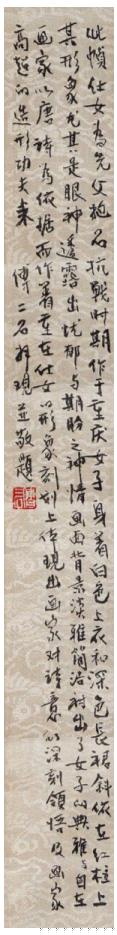 此幀仕女為先父抱石抗戰時期作于重庆女子身着白色上衣和深色長裙斜依在红柱上
其形象尤其是眼神透露出忧郁与期盼之神情画面背景淡雅簡洁衬出了女子的典雅自在
画家以唐诗為依据而作着重在仕女的形象刻划上体現出画家对诗意的深刻領悟及画家
高超的造形功夫来 傅二石拜观並敬題